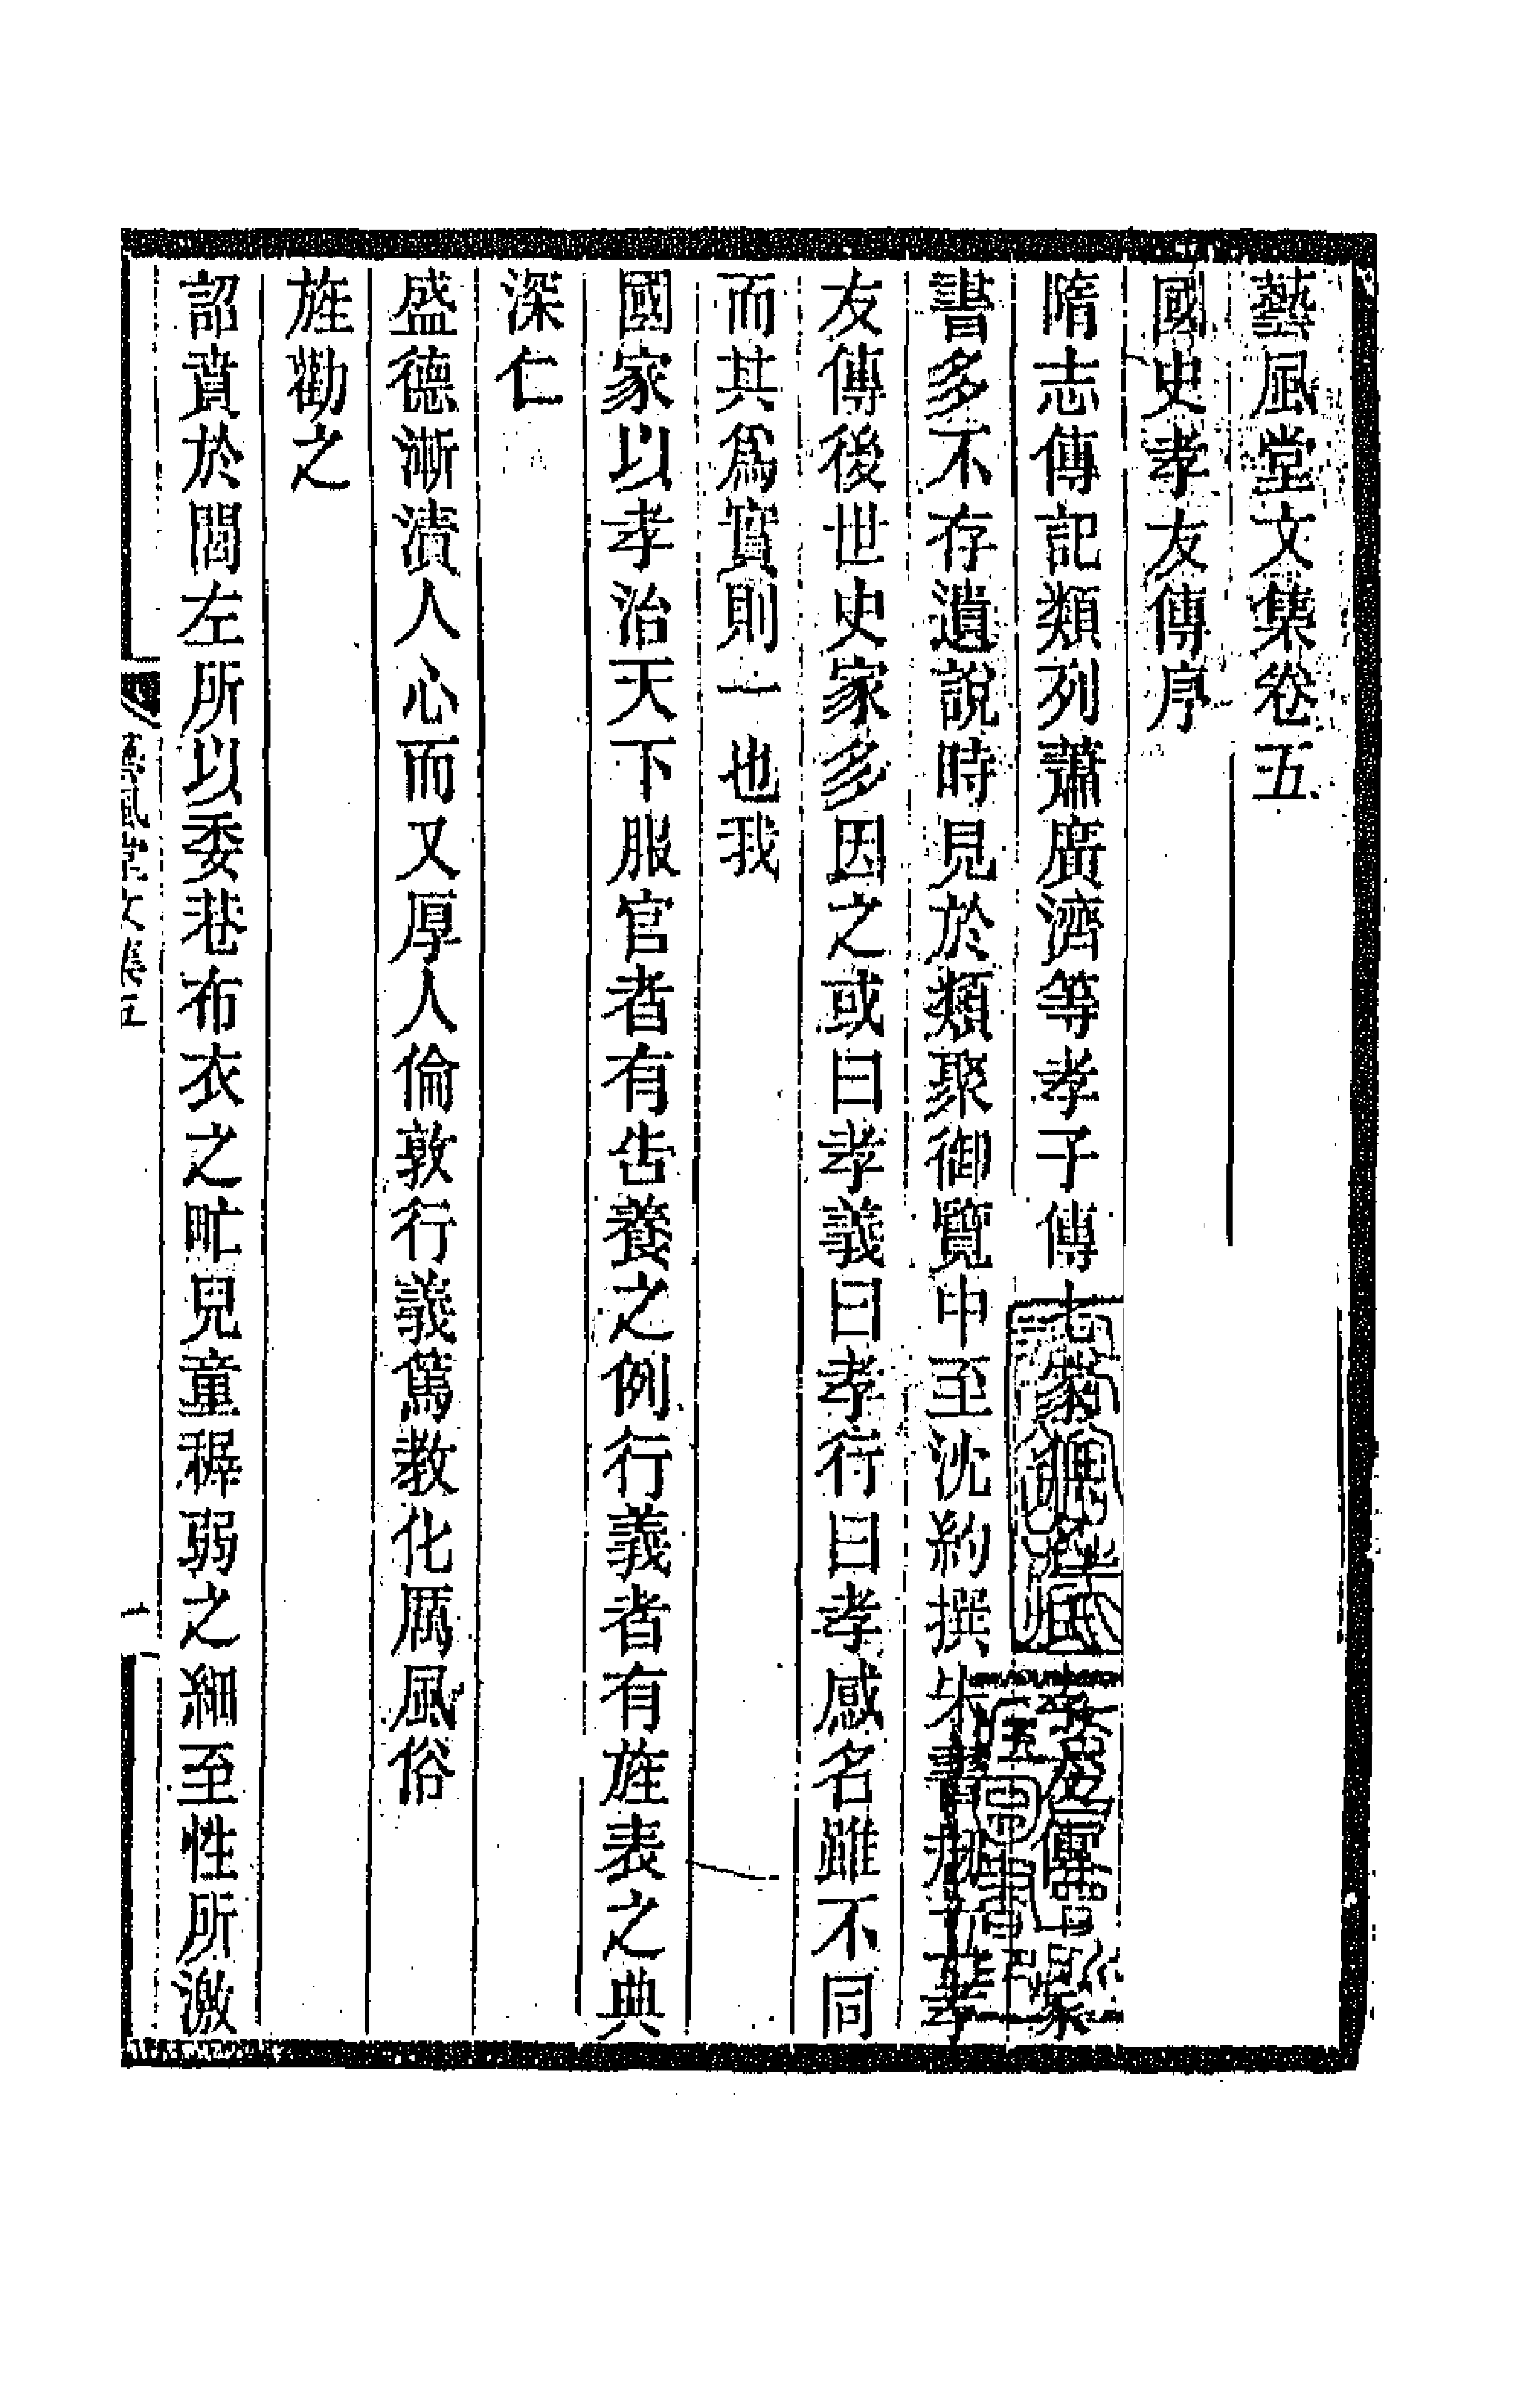 藝風堂文集卷五
國史孝友傳序
隋志傳記類列蕭廣濟等孝子傳七家孝友傳一家
書多不存遺說時見於類聚御覽中至沈約撰宋書孝
友傳後世史家多因之或曰孝義曰孝行曰孝感名雖不同
而其爲實則一也我
國家以孝治天下服官者有告養之例行義者有旌表之典
深仁
盛德漸漬人心而又厚人倫敦行義篤教化厲風俗
旌勸之
詔賁於閭左所以委巷布衣之甿兒童穉弱之細至性所激
藝風堂文集五
一